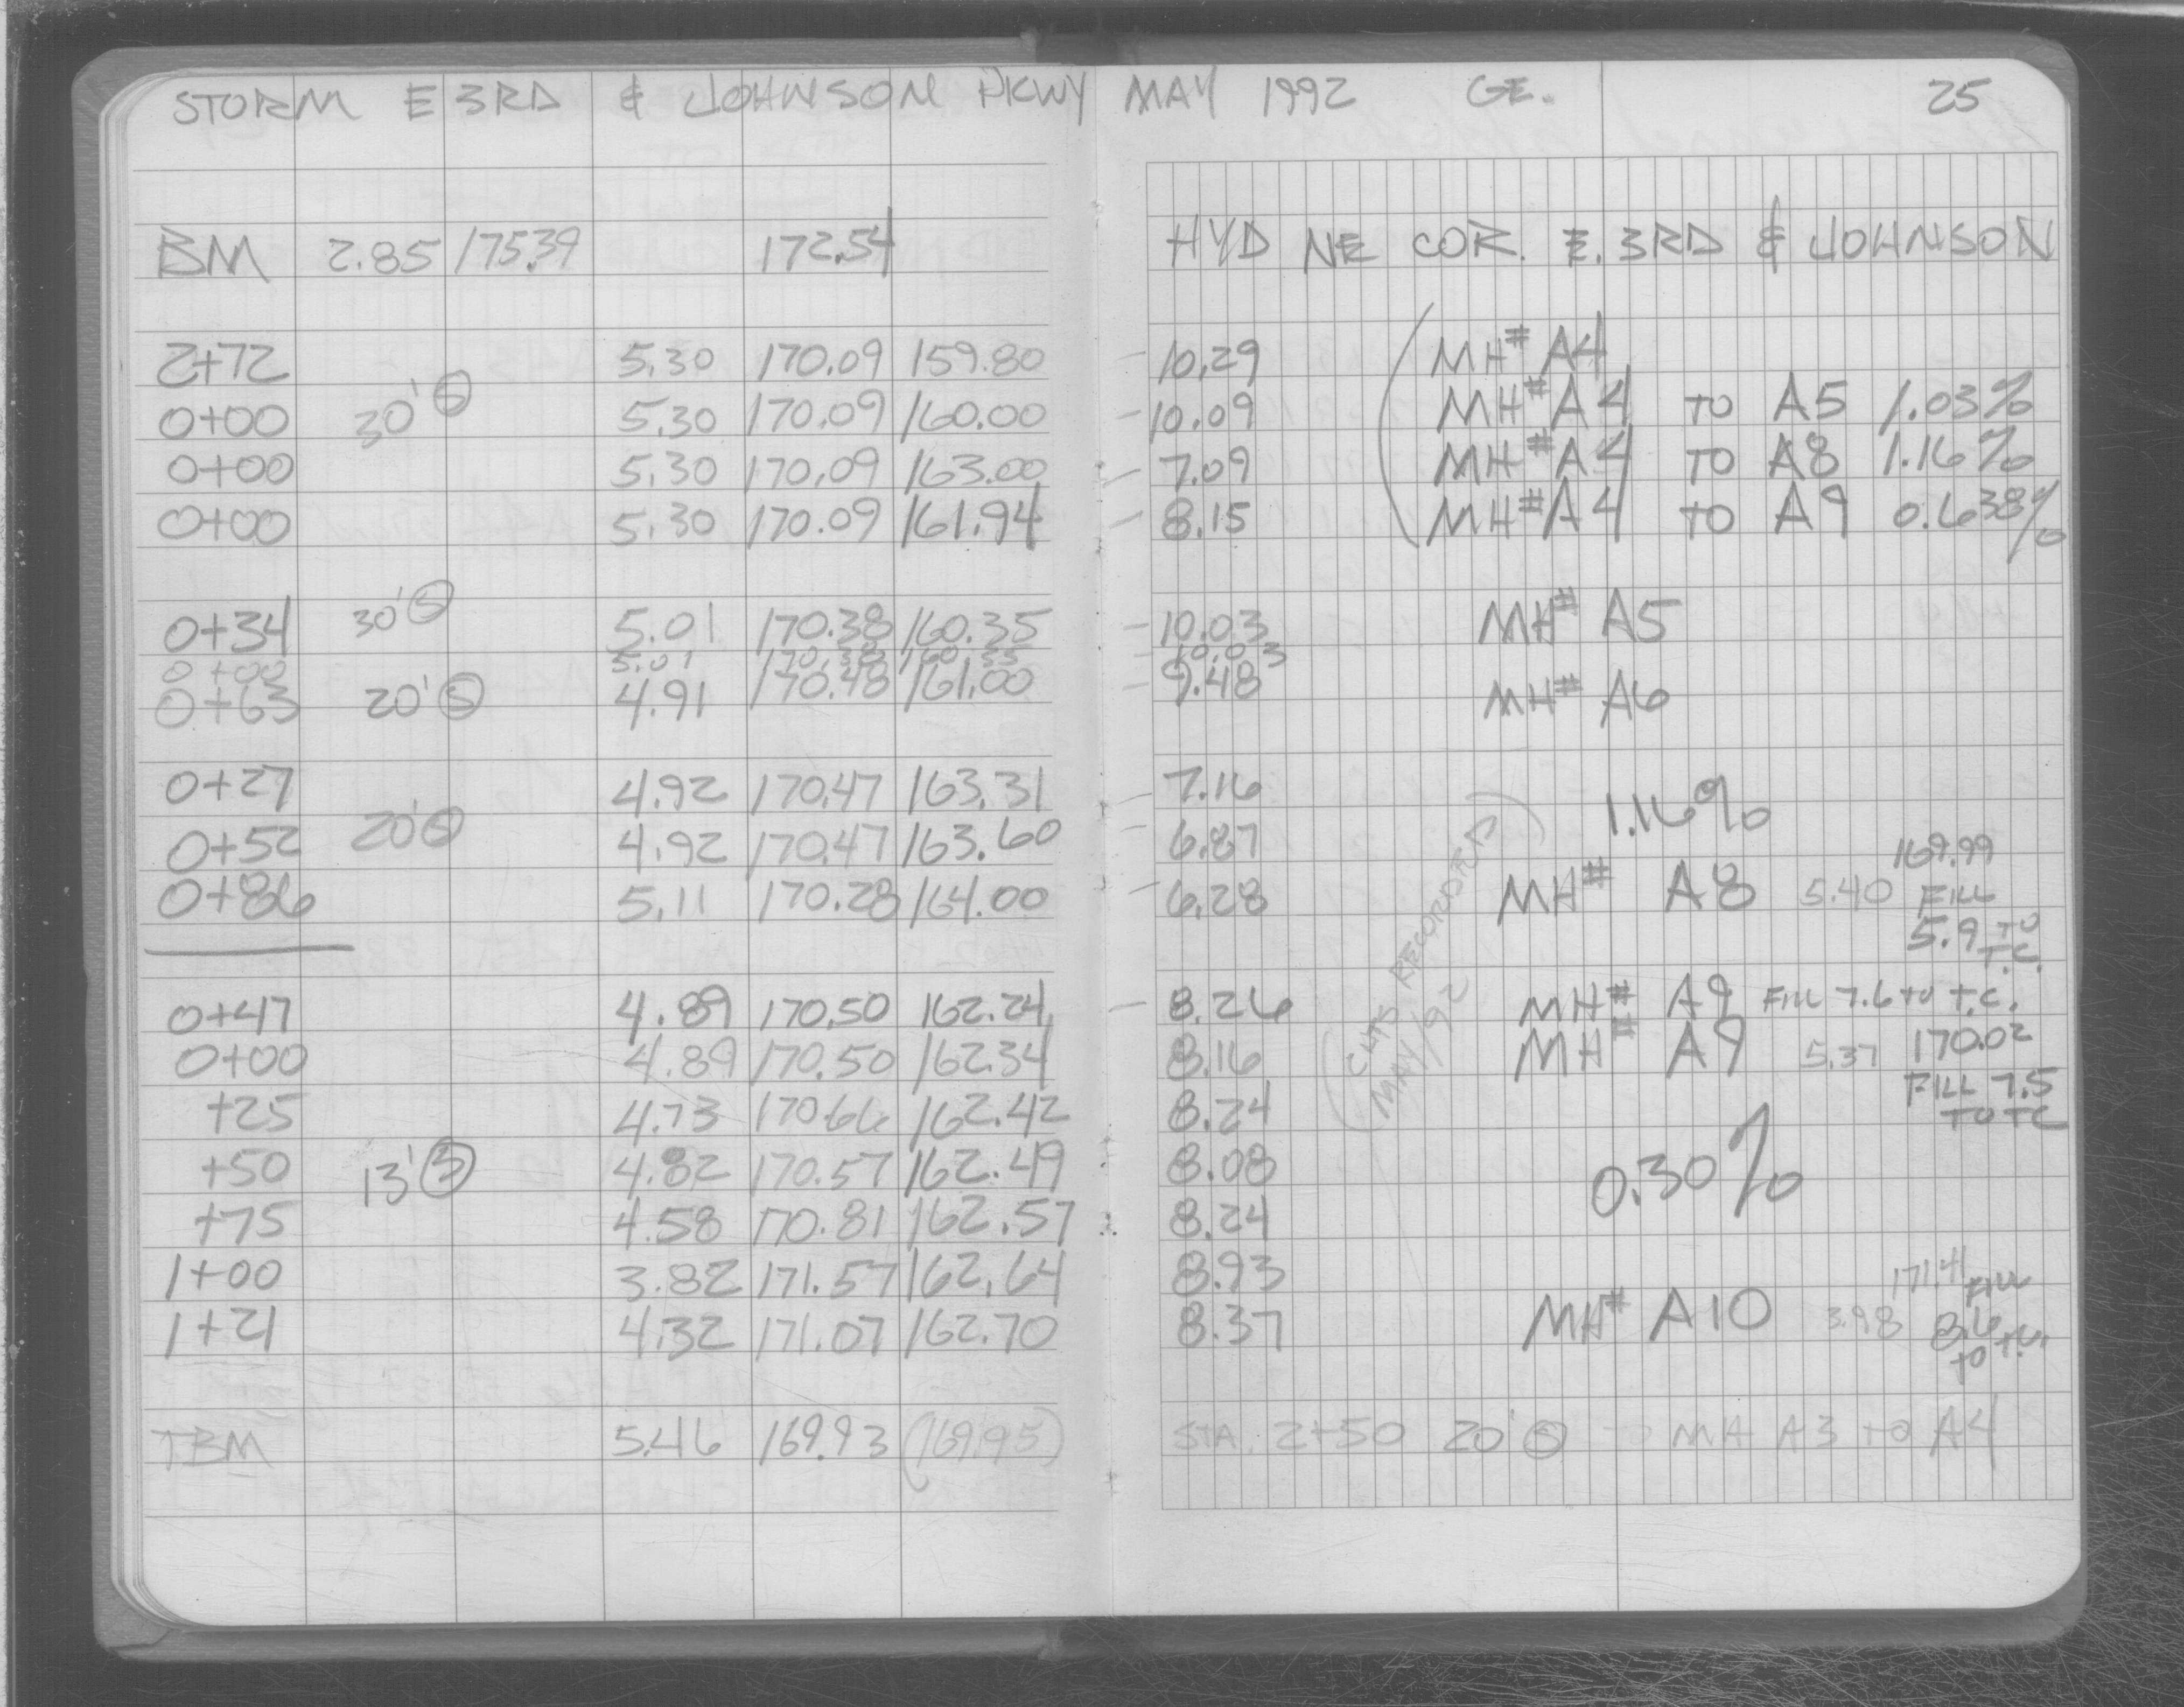 STORM E 3RD & JOHNSON PKWY MAY 1992 GE. 25
BM 2.85 175.39 172.54 HYD NE COR. E. 3RD & JOHNSON
2+72 5.30 170.09 159.80 10.29 MH# A4
0+00 30' Ⓢ 5.30 170.09 160.00 10.09 MH# A4 TO A5 1.03%
0+00 5.30 170.09 163.00 7.09 MH# A4 TO A8 1.16%
0+00 5.30 170.09 161.94 8.15 MH# A4 TO A9 0.638%
0+34 30' Ⓢ 5.01 170.38 160.35 10.03 MH# A5
0+00 5.01 170.38 160.35 10.03
0+63 20' Ⓢ 4.91 170.48 161.00 9.48 MH# A6
0+27 4.92 170.47 163.31 7.16 1.16%
0+52 20' Ⓢ 4.92 170.47 163.60 6.87
169.99
0+86 5.11 170.28 164.00 6.28 MH# A8 5.40 FILL
5.9 TO
T.C.
0+47 4.89 170.50 162.24 8.26 MH# A9 FILL 7.6 TO T.C.
0+00 4.89 170.50 162.34 8.16 MH# A9 5.37 170.02
FILL 7.5
TO TC
(CUTS RECORDED)
MAY/92
+25 4.73 170.66 162.42 8.24
+50 13' Ⓢ 4.82 170.57 162.49 8.08 0.30%
+75 4.58 170.81 162.57 8.24
1+00 3.82 171.57 162.64 8.93
171.41 FILL
1+21 4.32 171.07 162.70 8.37 MH# A10 3.98 8.6
TO T.C.
TBM 5.46 169.93 (169.95) STA. 2+50 20' Ⓢ MH A3 TO A4